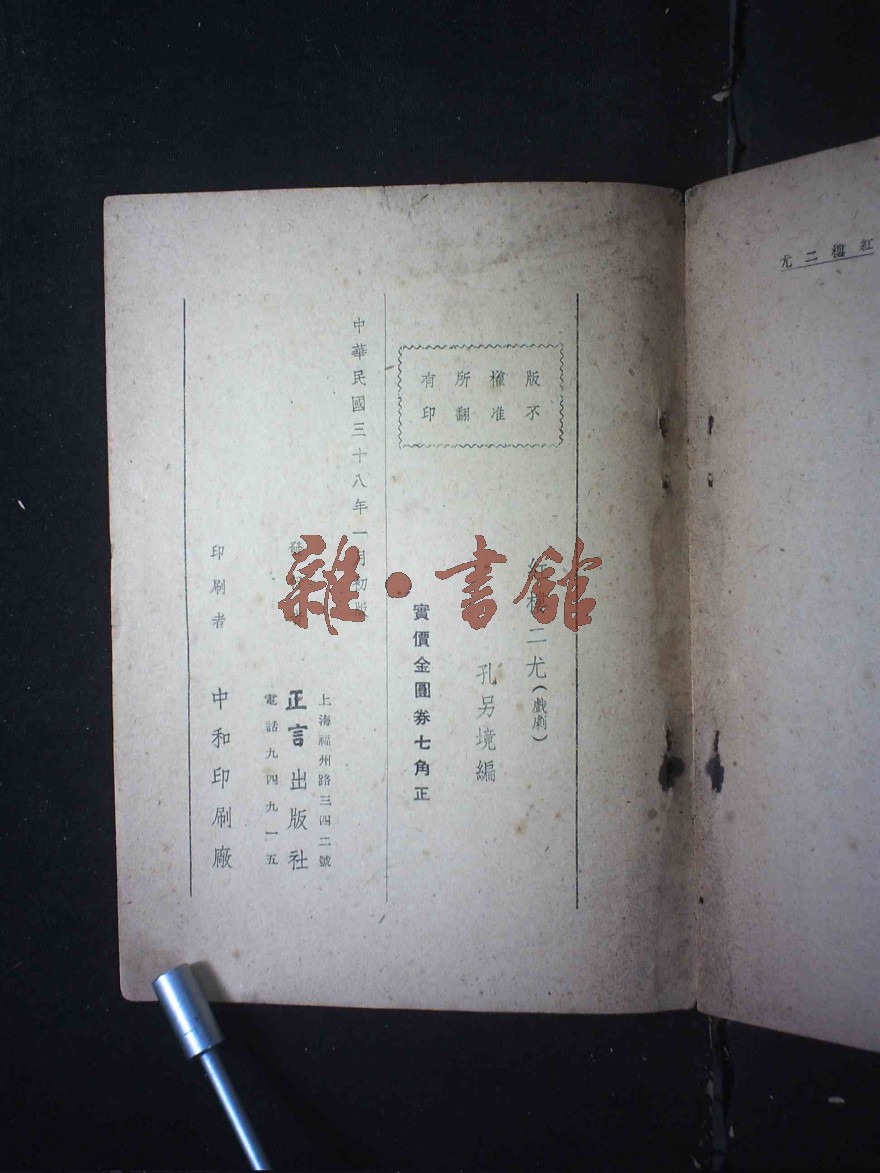 紅樓二尤
版權所有
不准翻印
紅樓二尤（戲劇）
孔另境編
實價金圓券七角正
中華民國三十八年一月初版
上海福州路三四二號
發
正言出版社
電話九四九一五
印刷者 中和印刷廠
雜·書館